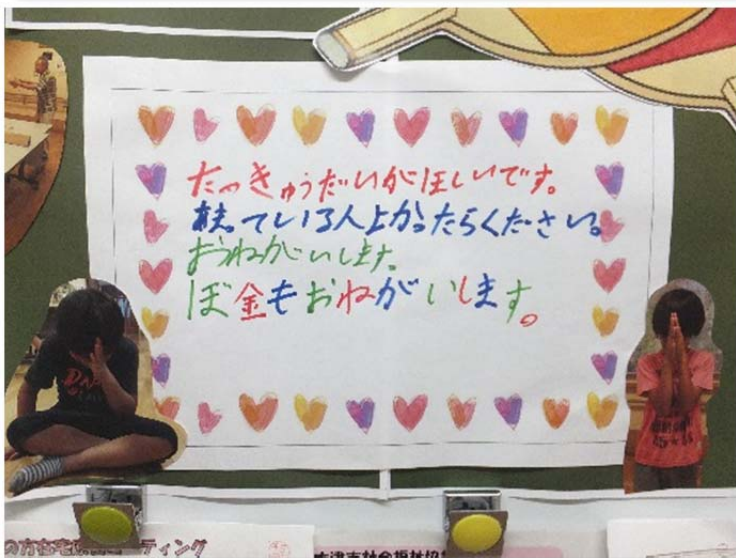 たっきゅうだいがほしいです。
持っている人よかったらください。
おねがいします。
ぼ金もおねがいします。
の方在宅
ティング
木津市社会福祉協